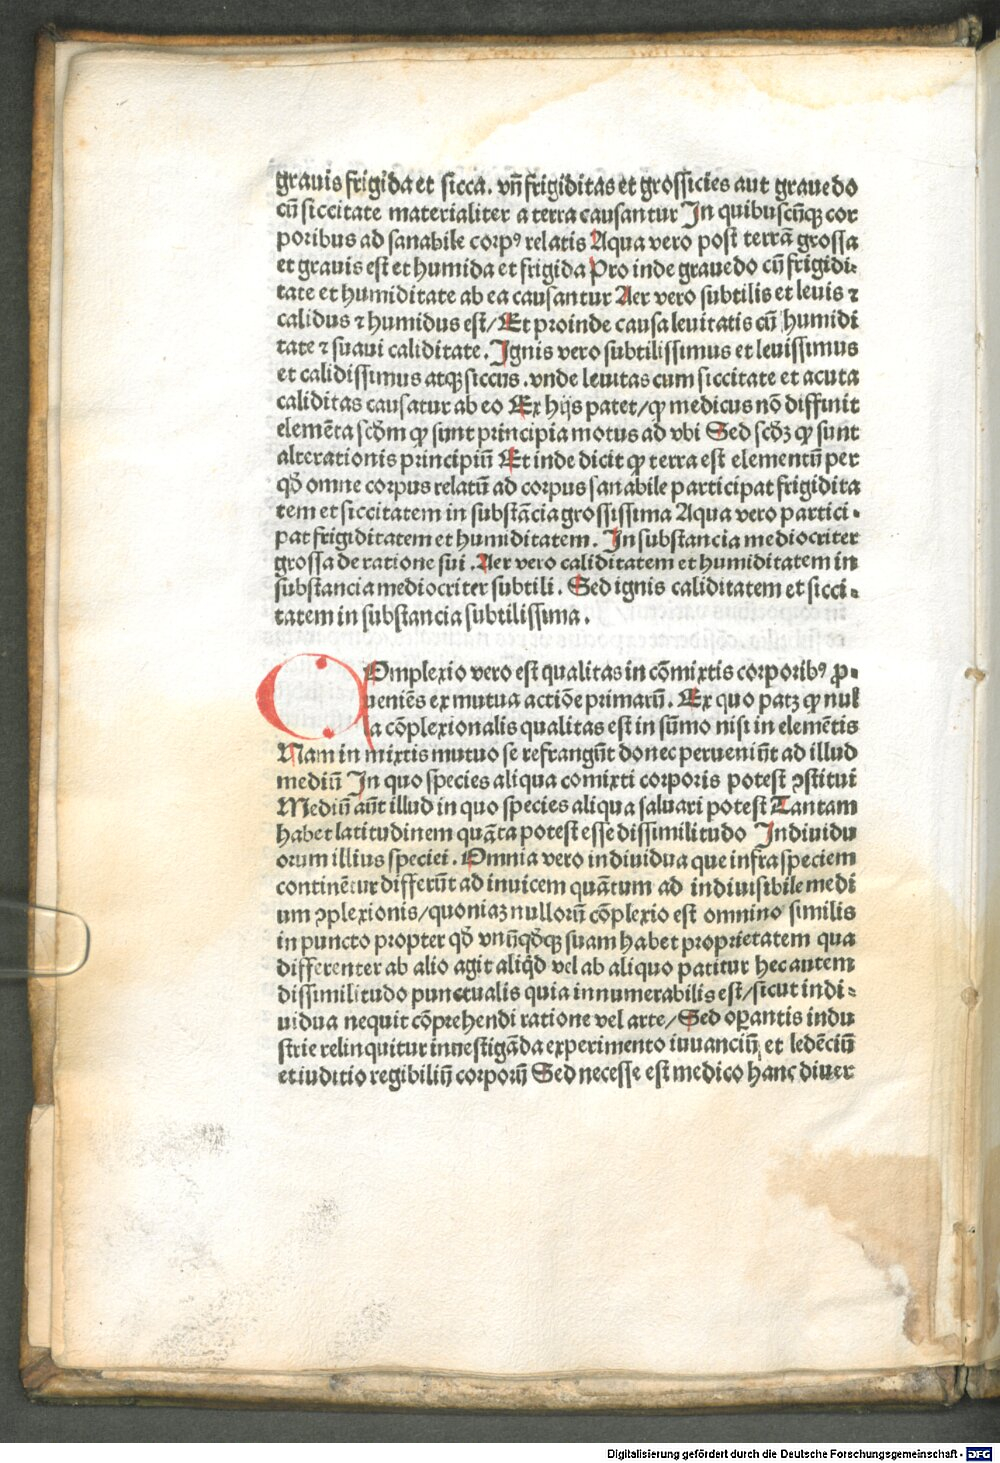 grauis frigida et sicca. vn̄ frigiditas et grossicies aut grauedo
cū siccitate materialiter a terra causantur In quibuscūqꝫ cor
poribus ad sanabile corpꝰ relatis Aqua vero post terrā grossa
et grauis est et humida et frigida Pro inde grauedo cū frigidi-
tate et humiditate ab ea causantur Aer vero subtilis et leuis ⁊
calidus ⁊ humidus est/ Et proinde causa leuitatis cū humidi
tate ⁊ suaui caliditate. Ignis vero subtilissimus et leuissimus
et calidissimus atqꝫ siccus. vnde leuitas cum siccitate et acuta
caliditas causatur ab eo Ex hijs patet/ ꝙ medicus nō diffinit
elemēta scd̄m ꝙ sunt principia motus ad vbi Sed scd̄ꝫ ꝙ sunt
alterationis principiū Et inde dicit ꝙ terra est elementū per
qd̄ omne corpus relatū ad corpus sanabile participat frigidita
tem et siccitatem in substācia grossissima Aqua vero partici-
pat frigiditatem et humiditatem. In substancia mediocriter
grossa de ratione sui. Aer vero caliditatem et humiditatem in
substancia mediocriter subtili. Sed ignis caliditatem et sicci-
tatem in substancia subtilissima.
COmplexio vero est qualitas in cōmixtis corporibꝰ ꝓ-
ueniēs ex mutua actiōe primarū. Ex quo patꝫ ꝙ nul
la cōplexionalis qualitas est in sūmo nisi in elemētis
Nam in mixtis mutuo se refrangūt donec perueniūt ad illud
mediū In quo species aliqua comixti corporis potest ꝯstitui
Mediū aūt illud in quo species aliqua saluari potest Tantam
habet latitudinem quāta potest esse dissimilitudo Indiuidu
orum illius speciei. Omnia vero indiuidua que infra speciem
continētur differūt ad inuicem quātum ad indiuisibile medi
um ꝯplexionis/ quoniaꝫ nullorū cōplexio est omnino similis
in puncto propter qd̄ vnūqd̄qꝫ suam habet proprietatem qua
differenter ab alio agit aliqd̄ vel ab aliquo patitur hec autem
dissimilitudo punctualis quia innumerabilis est/ sicut indi-
uidua nequit cōprehendi ratione vel arte/ Sed oꝑantis indu
strie relinquitur inuestigāda experimento iuuanciū et ledēciū
et iuditio regibiliū corporū Sed necesse est medico hanc diuer
Digitalisierung gefördert durch die Deutsche Forschungsgemeinschaft - DFG